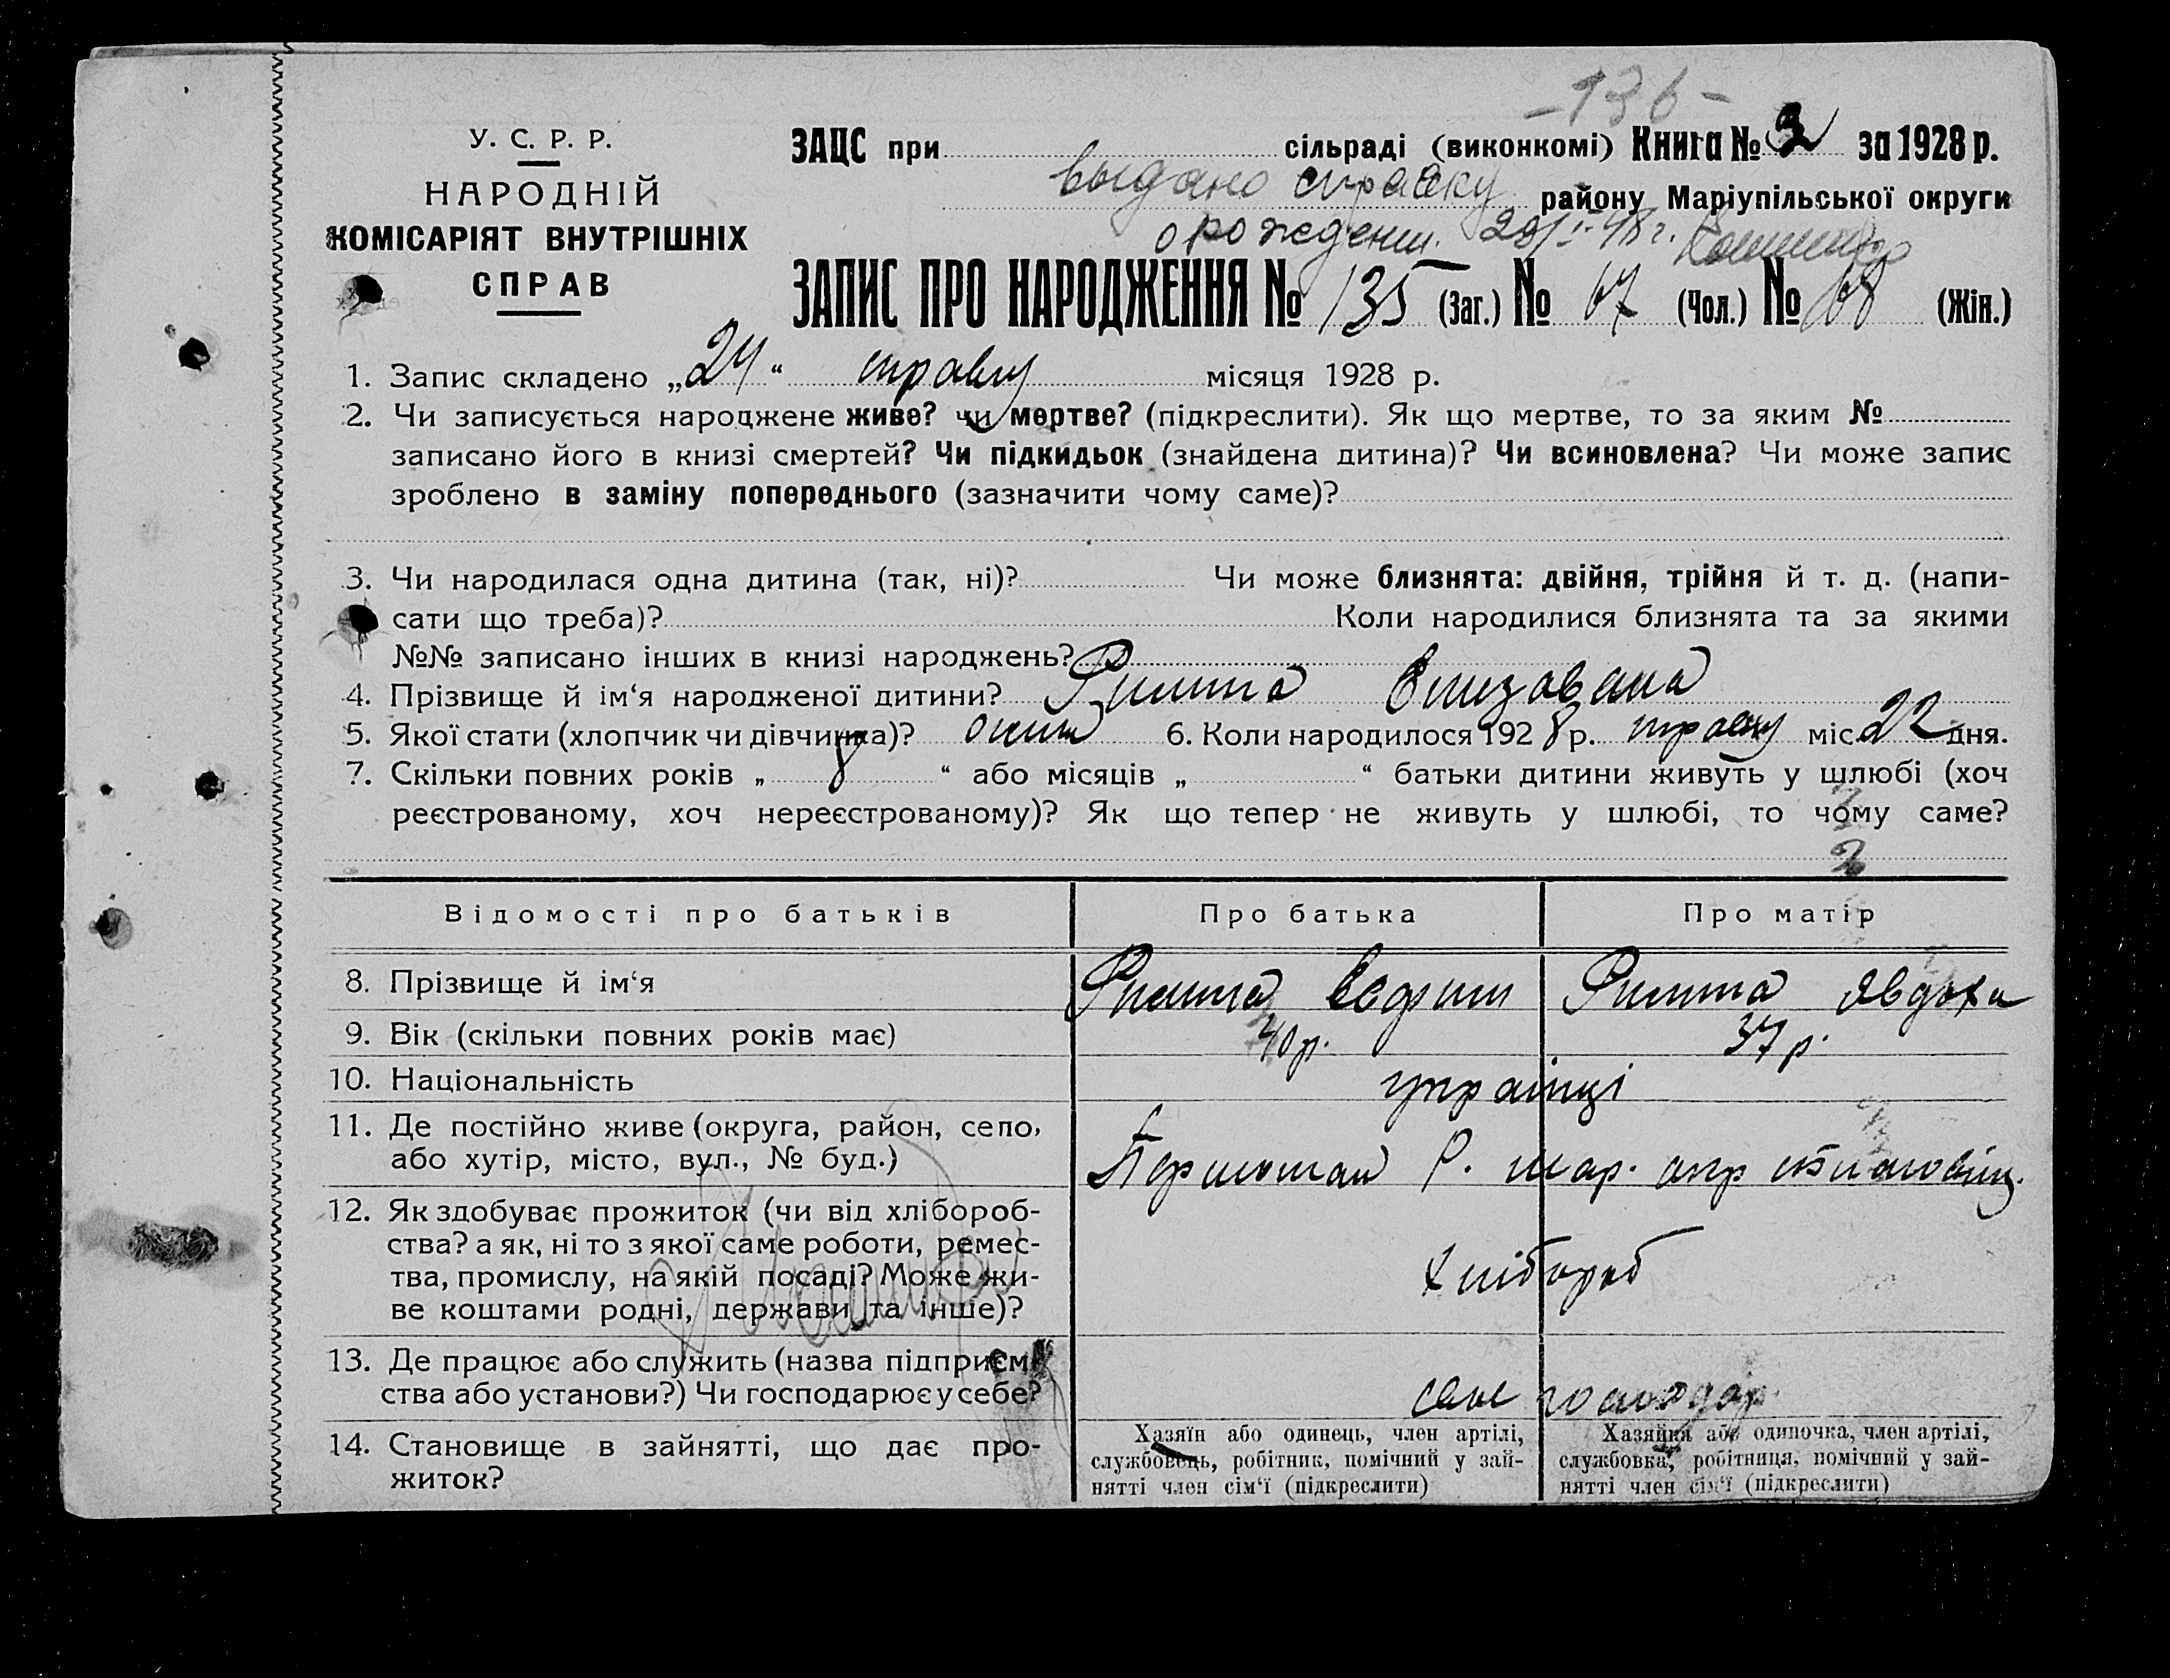 -136-
У. С. Р. Р.
НАРОДНІЙ
КОМІСАРІЯТ ВНУТРІШНІХ
СПРАВ
ЗАЦС при сільраді (виконкомі) Книга № 3 за 1928 р.
выдано справку району Маріупільської округи
о рождении.
ЗАПИС ПРО НАРОДЖЕННЯ № 135 (Заг.) № 67 (Чол.) № 68 (Жін.)
1. Запис складено „24“ травня місяця 1928 р.
2. Чи записується народжене живе? чи мертве? (підкреслити). Як що мертве, то за яким №
записано його в книзі смертей? Чи підкидьок (знайдена дитина)? Чи всиновлена? Чи може запис
зроблено в заміну попереднього (зазначити чому саме)?
3. Чи народилася одна дитина (так, ні)? Чи може близнята: двійня, трійня й т. д. (напи-
сати що треба)? Коли народилися близнята та за якими
№№ записано інших в книзі народжень?
4. Прізвище й ім‘я народженої дитини?
5. Якої стати (хлопчик чи дівчинка)? 6. Коли народилося 1928 р. травня міс. 22 дня.
7. Скільки повних років „ “ або місяців „ “ батьки дитини живуть у шлюбі (хоч
реєстрованому, хоч нереєстрованому)? Як що тепер не живуть у шлюбі, то чому саме?
Відомості про батьків Про батька Про матір
8. Прізвище й ім‘я Явдоха
9. Вік (скільки повних років має) 40 р. 37 р.
10. Національність українці
11. Де постійно живе (округа, район, село,
або хутір, місто, вул., № буд.)
12. Як здобуває прожиток (чи від хлібороб-
ства? а як, ні то з якої саме роботи, ремес-
тва, промислу, на якій посаді? Може жи-
ве коштами родні, держави та інше)?
хлібороб
13. Де працює або служить (назва підприєм-
ства або установи?) Чи господарює у себе?
14. Становище в зайнятті, що дає про-
житок?
Хазяїн або одинець, член артілі,
службовець, робітник, помічний у зай-
нятті член сім‘ї (підкреслити)
Хазяйка або одиночка, член артілі,
службовка, робітниця, помічний у зай-
нятті член сім‘ї (підкреслити)